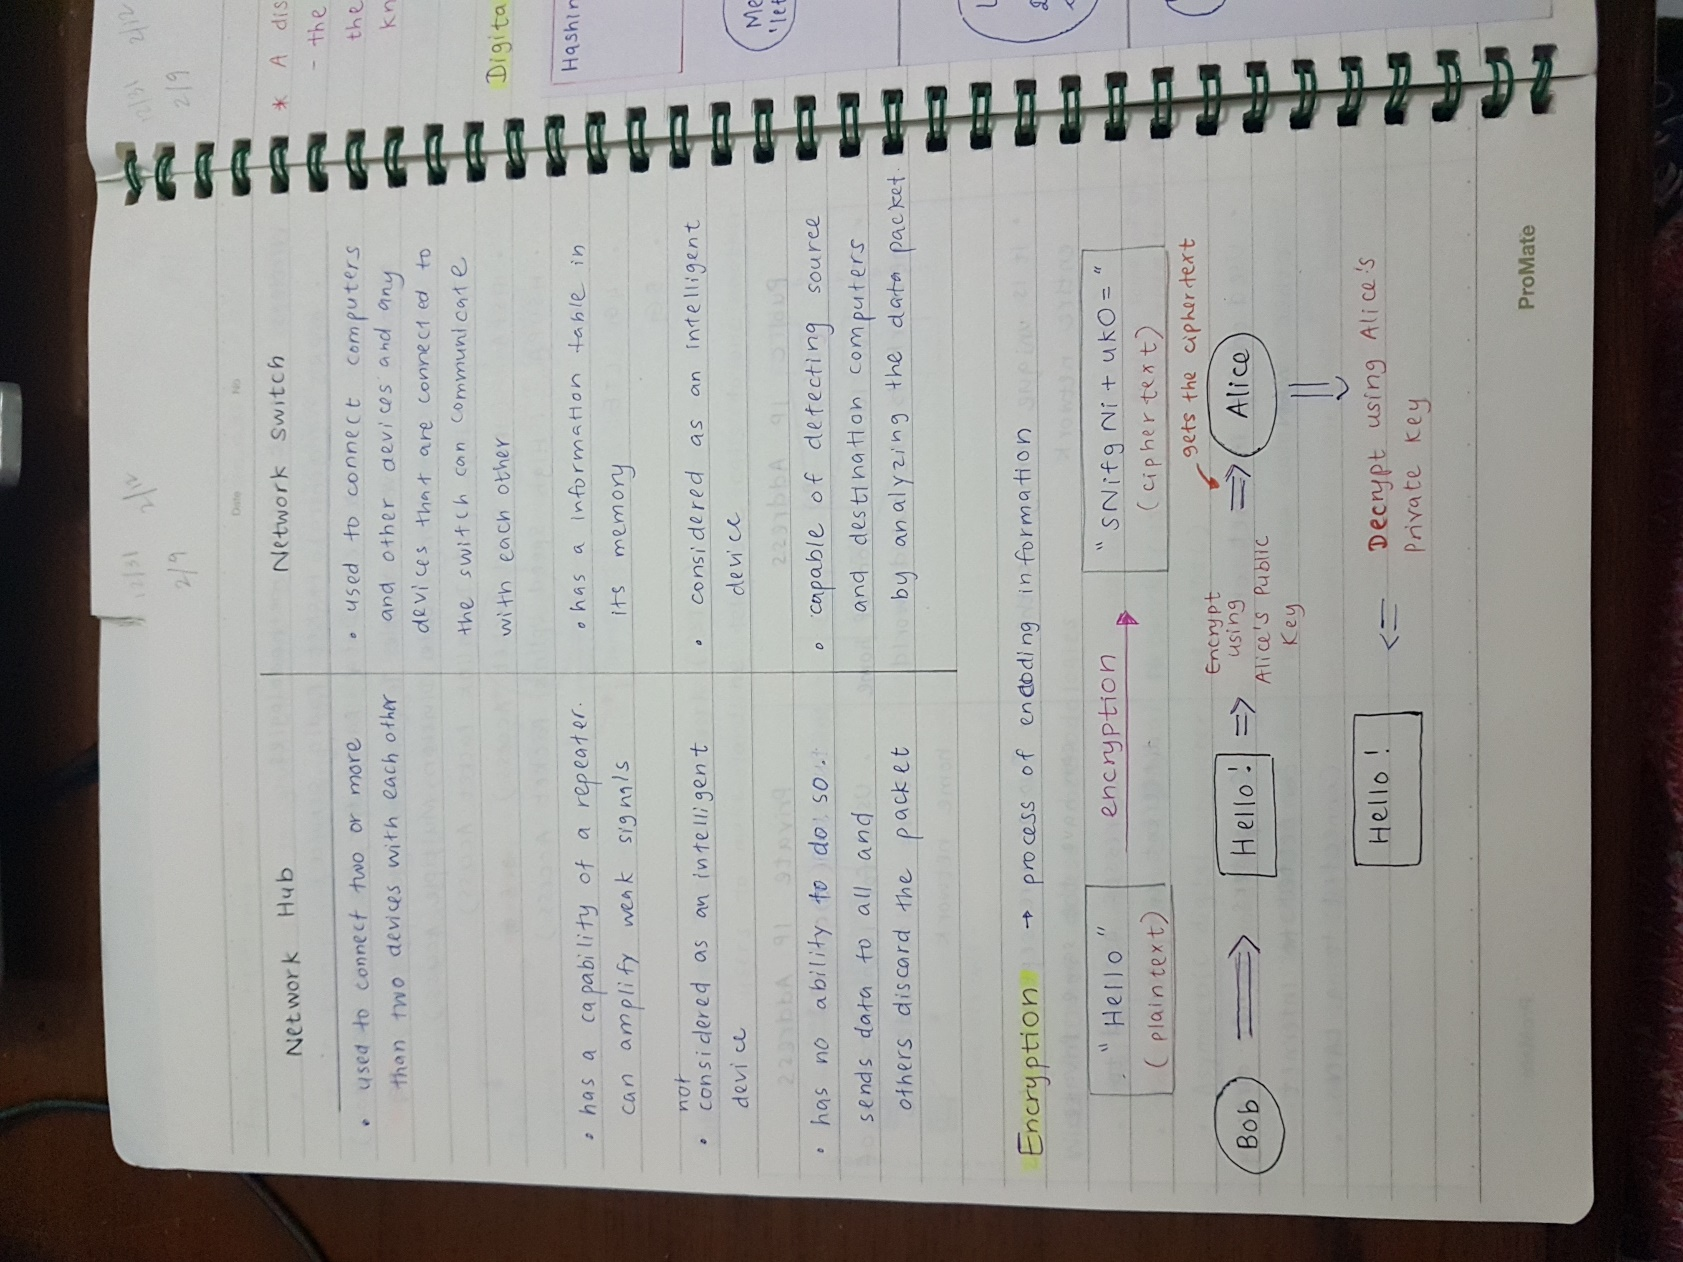 12/31 2/12
2/9
Date No
Network Hub
Network Switch
• used to connect two or more
than two devices with each other
• used to connect computers
and other devices and any
devices that are connected to
the switch can communicate
with each other
• has a capability of a repeater.
can amplify weak signals
• has a information table in
its memory
not
• considered as an intelligent
device
• considered as an intelligent
device
• has no ability to do so.
sends data to all and
others discard the packet
• capable of detecting source
and destination computers
by analyzing the data packet.
Encryption → process of encoding information
"Hello"
(plaintext)
encryption
"SNifgNi+ukO="
(ciphertext)
gets the ciphertext
Bob ⇒ Hello! ⇒
Encrypt
using
Alice's Public
Key
⇒ Alice
⇒ Decrypt using Alice's
Private Key
⇐
Hello!
ProMate
12/31 2/12
2/9
* A dis
- the
the
kn
Digita
Hashin
Me